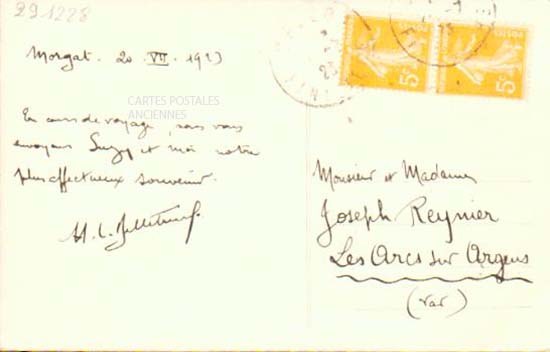 291228
Morgat. 20 VII 1923
CARTES POSTALES
ANCIENNES
En cours de voyage, nous vous
envoyons Suzy et moi notre
plus affectueux souvenir.
5c 5c
POSTES
Monsieur et Madame
Joseph Reynier
Les Arcs sur Argens
(Var)